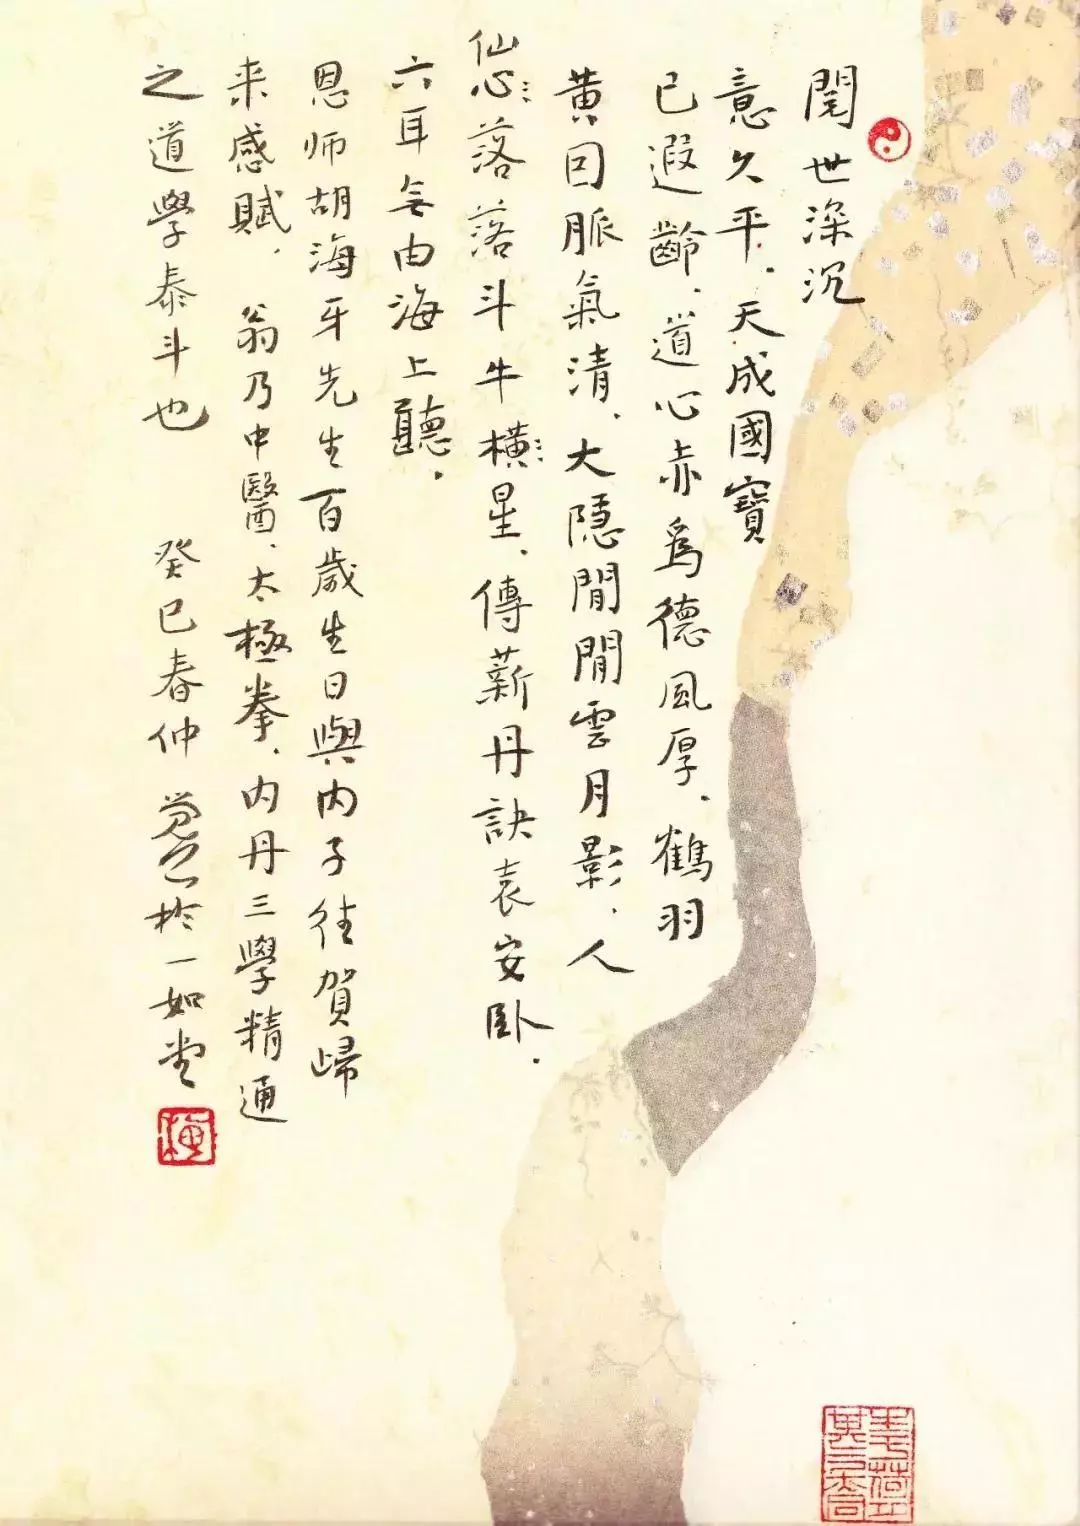 閱世深沉
意久平、天成國寶
已遐齡、道心赤爲德風厚、鶴羽
黄回脈氣清、大隱閒閒雲月影、人
仙心落落斗牛橫星、傳薪丹訣袁安卧、
六耳无由海上聽、
恩师胡海牙先生百歲生日與内子往賀歸
来感賦、翁乃中醫、太極拳、内丹三學精通
之道學泰斗也 癸巳春仲 於一如堂